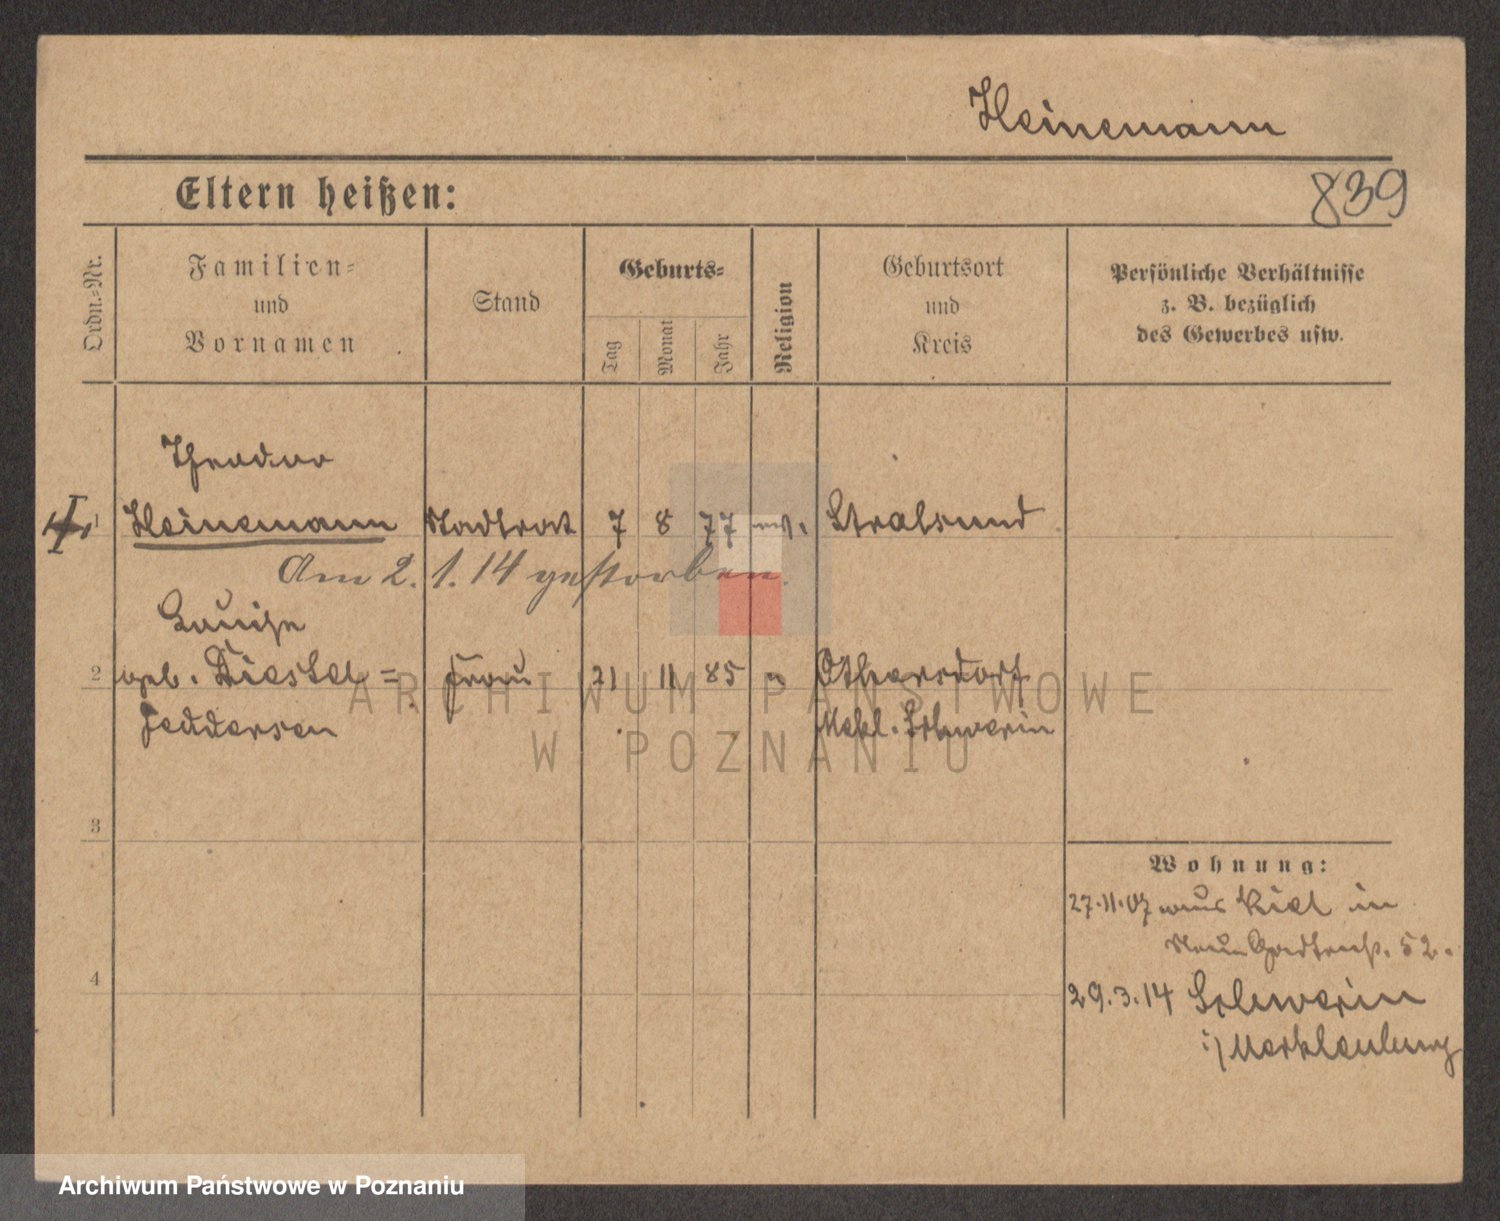 Heinemann
Eltern heißen:
839
Ordn.-Nr.
Familien-
und
Vornamen
Stand
Geburts-
Tag
Monat
Jahr
Religion
Geburtsort
und
Kreis
Persönliche Verhältnisse
z. B. bezüglich
des Gewerbes usw.
Theodor
1 Heinemann Stadtrat 7 8 77 ev. Stralsund
Am 2. 1. 14 gestorben.
Louise
2 geb. Diestel = Frau 21 11 85
Feddersen Mekl. Schwerin
3
Wohnung:
27.11.07 aus Kiel in
52.
4
29.3.14 Schwerin
i/Mecklenburg
ARCHIWUM PAŃSTWOWE
W POZNANIU
Archiwum Państwowe w Poznaniu